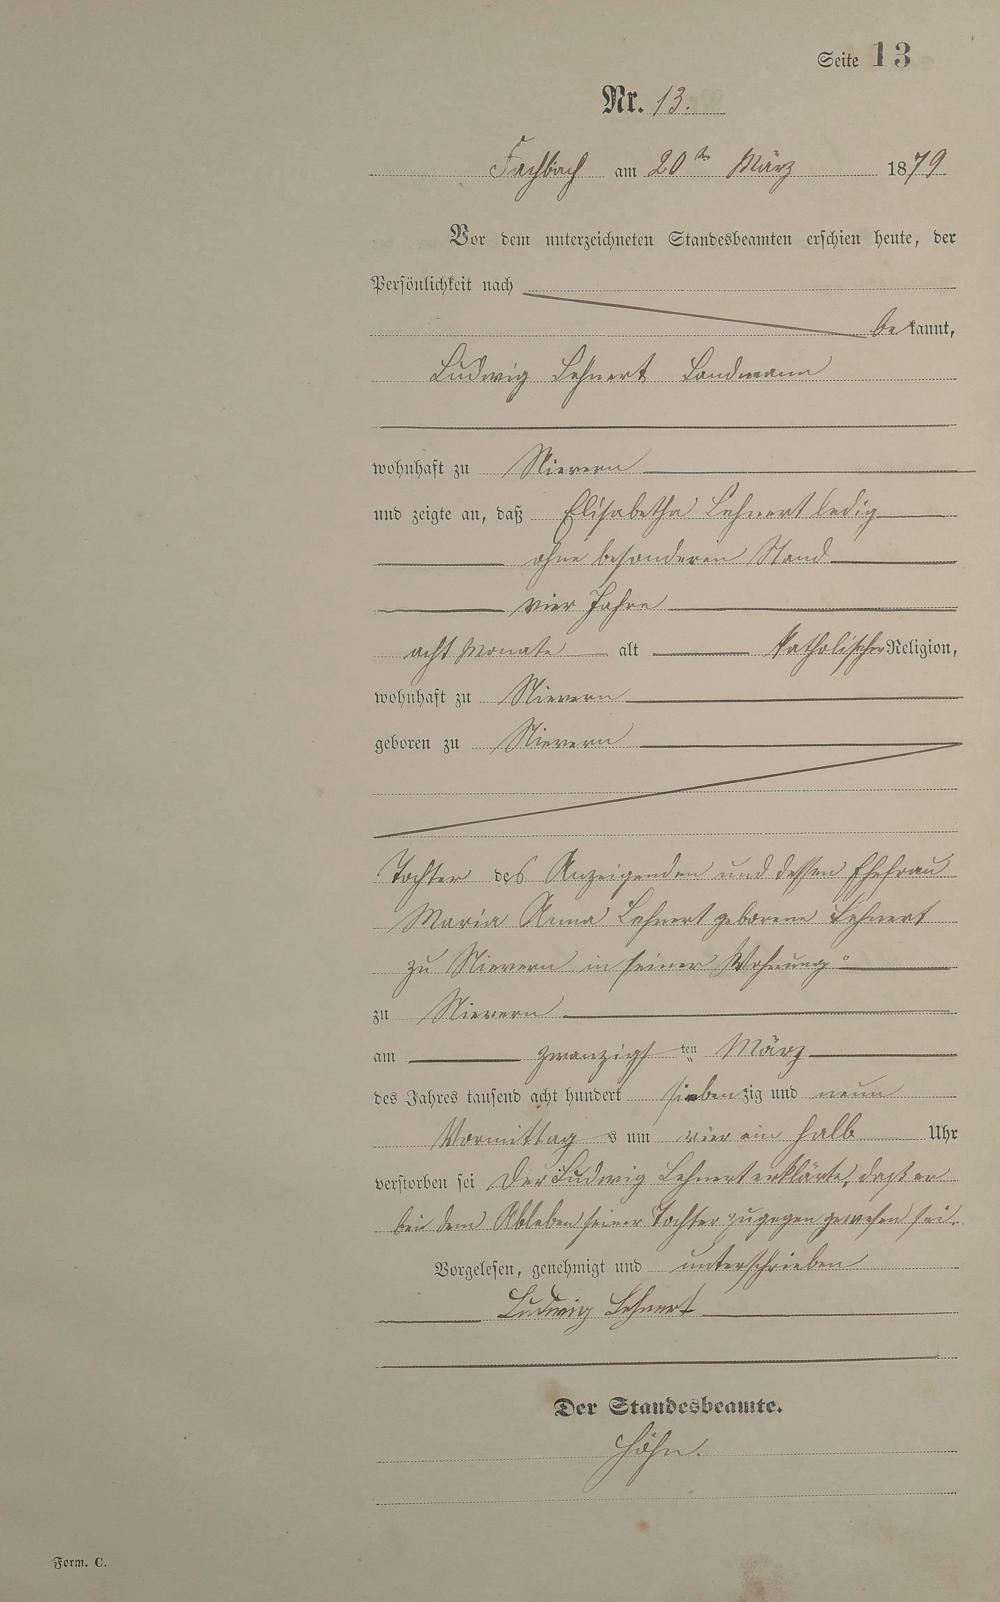 Seite 13
Nr. 13.
Fachbach am 20ten März 1879
Vor dem unterzeichneten Standesbeamten erschien heute, der
Persönlichkeit nach
bekannt,
Ludwig Lehnert Landmann
wohnhaft zu Nievern
und zeigte an, daß Elisabetha Lehnert ledig
ohne besonderen Stand
vier Jahre
acht Monate alt katholischer Religion,
wohnhaft zu Nievern
geboren zu Nievern
Tochter des Anzeigenden und dessen Ehefrau
Maria Anna Lehnert geborene Lehnert
zu Nievern in seiner Wohnung
zu Nievern
am zwanzigsten März
des Jahres tausend acht hundert siebenzig und neun
Vormittags um vier ein halb Uhr
verstorben sei Der Ludwig Lehnert erklärte, daß er
bei dem Ableben seiner Tochter zugegen gewesen sei.
Vorgelesen, genehmigt und unterschrieben
Ludwig Lehnert
Der Standesbeamte.
Höhn.
Form. C.